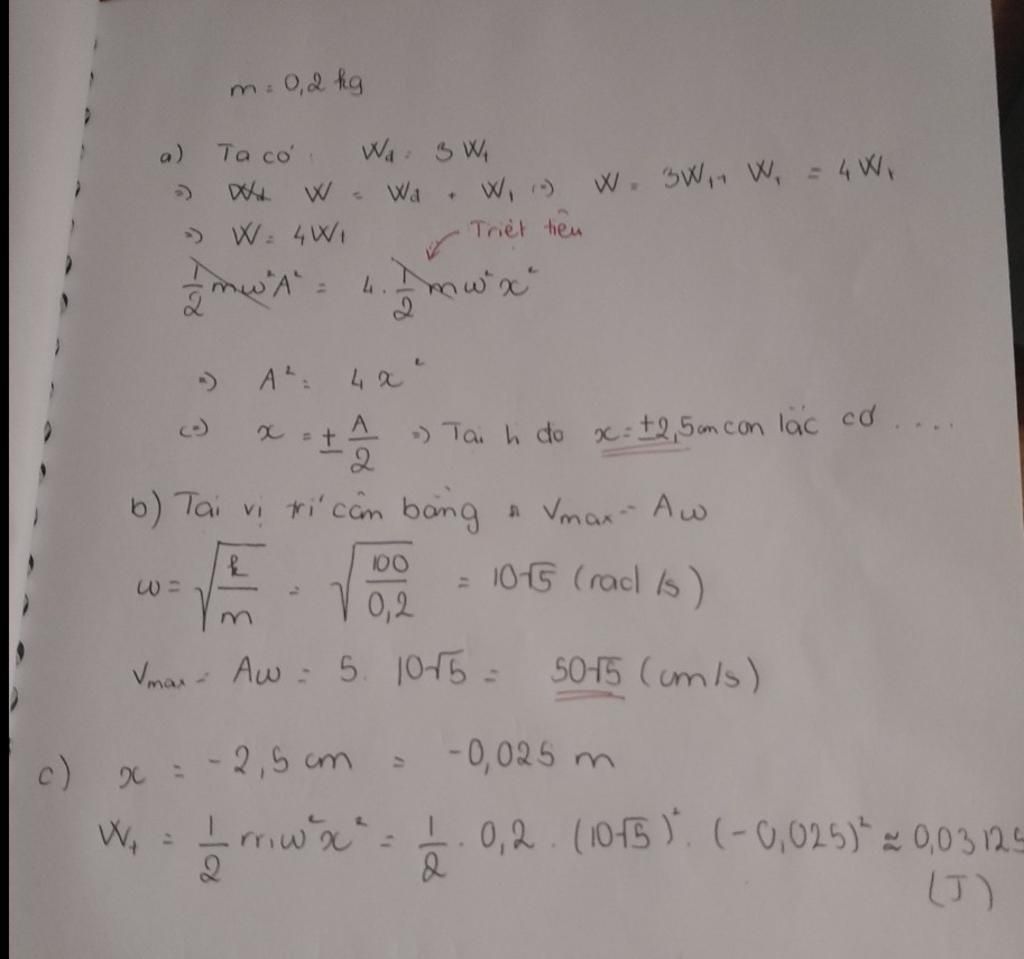 m = 0,2 kg
a) Ta có: Wđ = 3Wt
=> W = Wđ + Wt => W = 3Wt + Wt = 4Wt
=> W = 4Wt
Triệt tiêu
1/2 mω²A² = 4. 1/2 mω²x²
=> A² = 4x²
<=> x = ± A/2 => Tại li độ x = ±2,5cm con lắc có ....
b) Tại vị trí cân bằng vmax = Aω
ω = √(k/m) = √(100/0,2) = 10√5 (rad/s)
vmax = Aω = 5. 10√5 = 50√5 (cm/s)
c) x = -2,5 cm = -0,025 m
Wt = 1/2 mω²x² = 1/2 . 0,2 . (10√5)² . (-0,025)² ≈ 0,03125
(J)